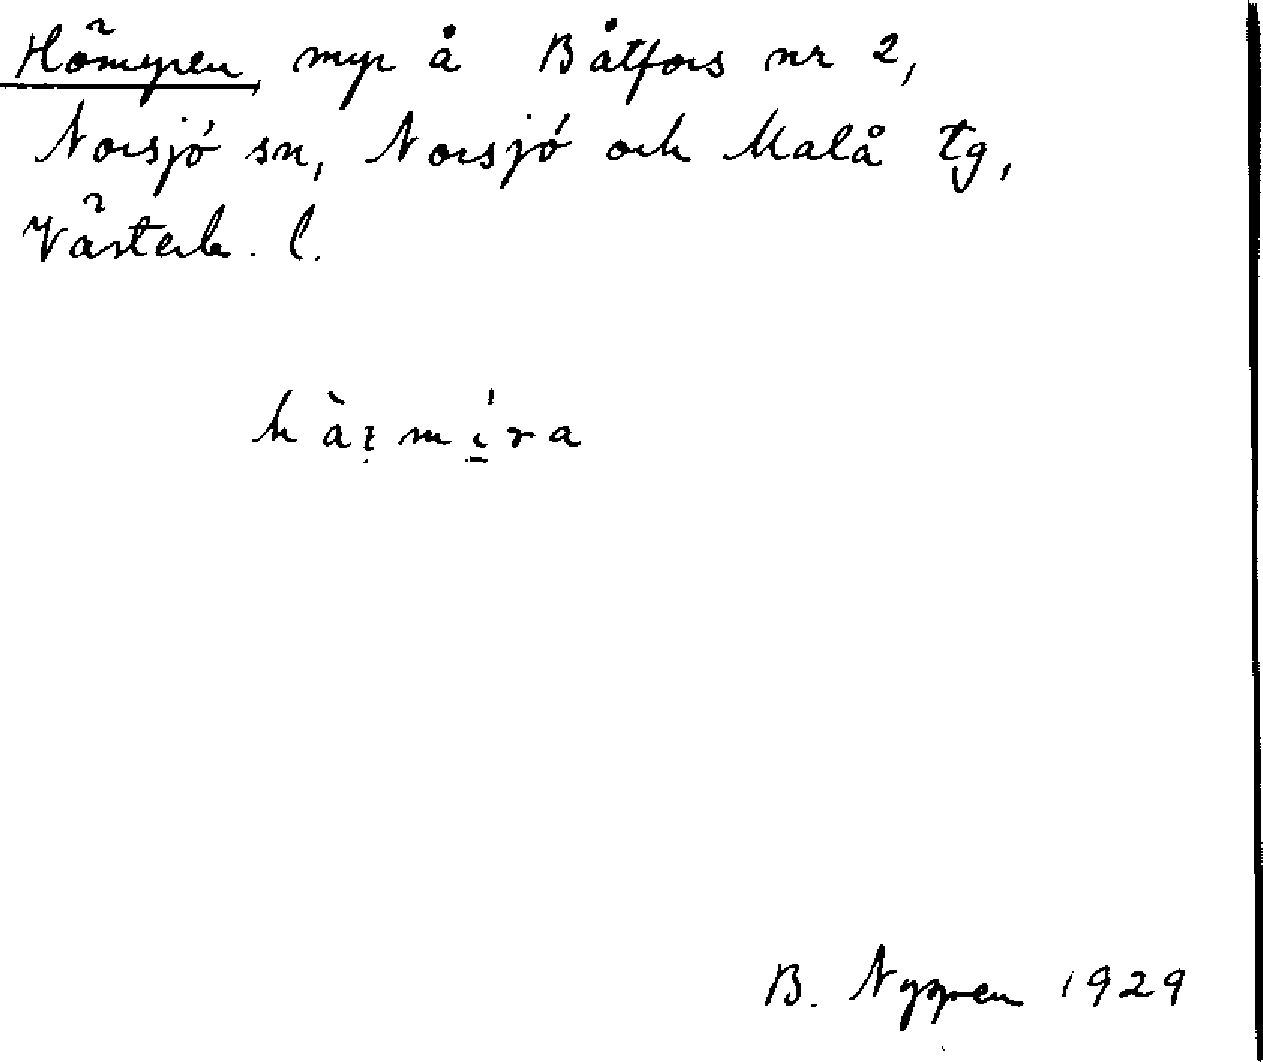 Hömyren, myr å Båtfors nr 2,
Norsjö sn, Norsjö och Malå tg,
Västerb. l.
B. Nygren 1929